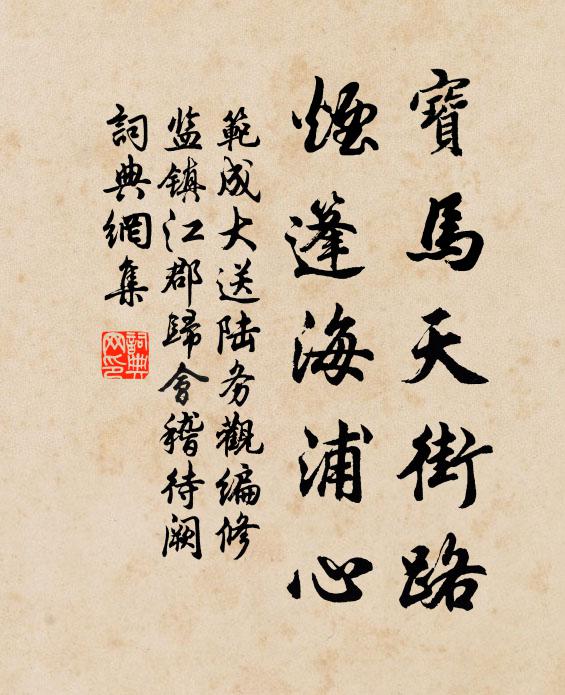 寶馬天街路
煙篷海浦心
範成大送陆务觀编修
监镇江郡歸會稽待阙
詞典網集
詞典
网印